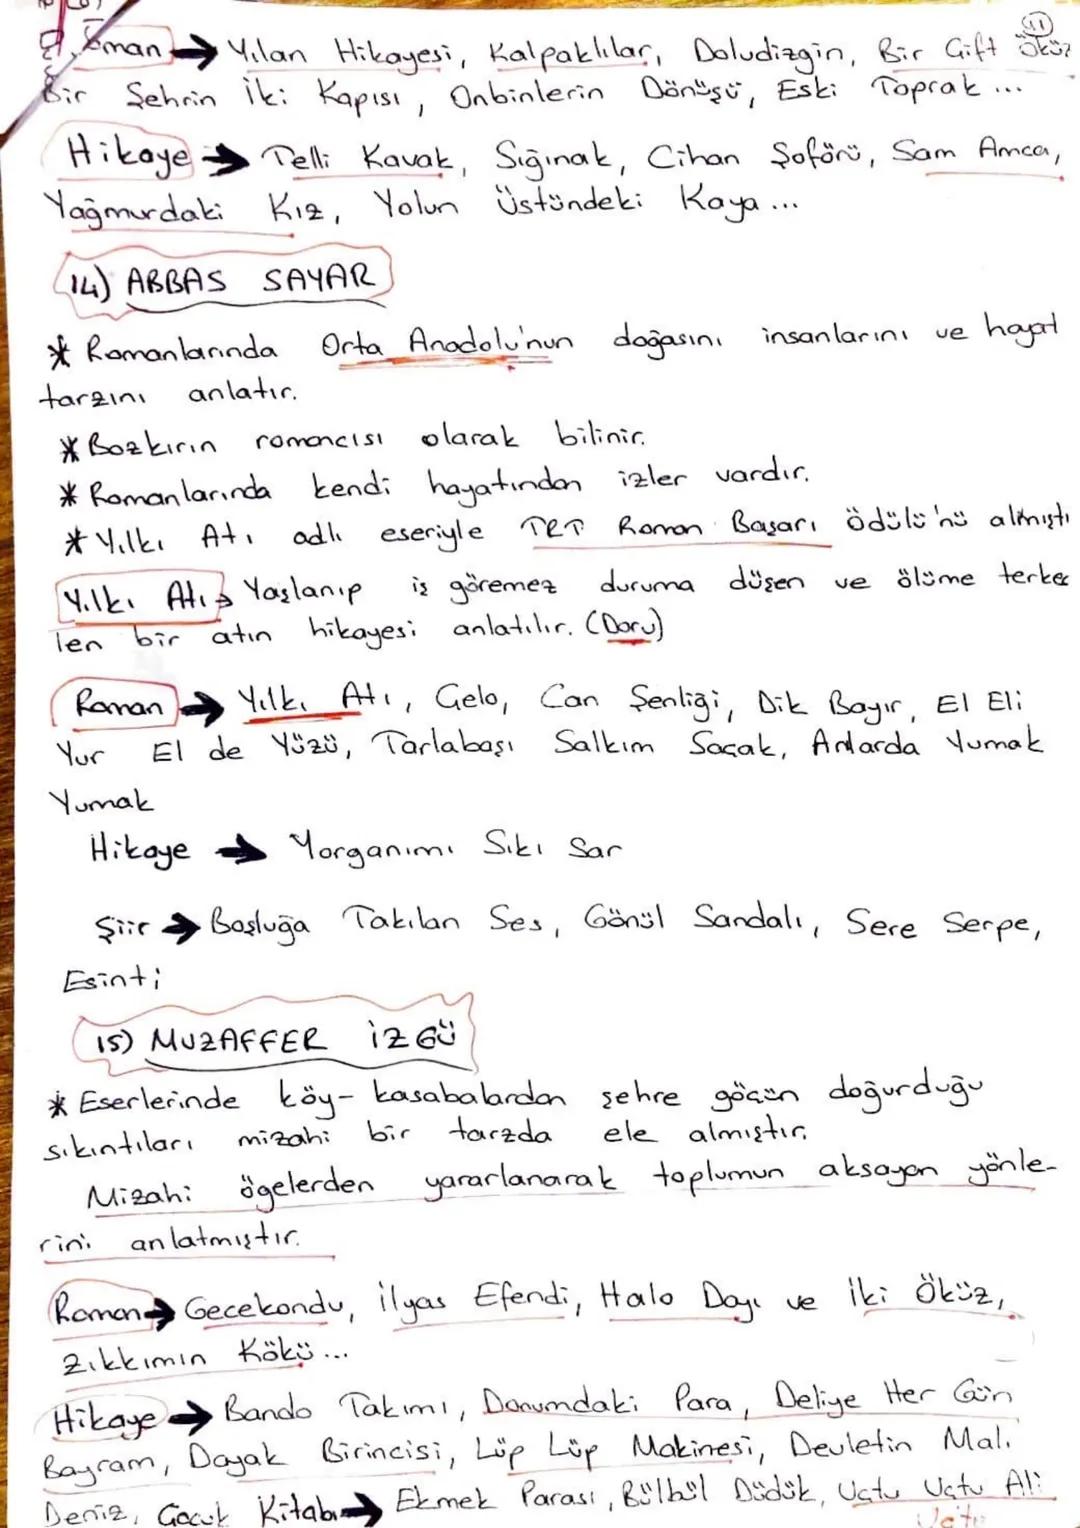 41
Roman → Yılan Hikayesi, Kalpaklılar, Doludizgin, Bir Çift Öküz
Bir Şehrin İki Kapısı, Onbinlerin Dönüşü, Eski Toprak ...
Hikaye → Telli Kavak, Sığınak, Cihan Şoförü, Sam Amca,
Yağmurdaki Kız, Yolun Üstündeki Kaya ...
14) ABBAS SAYAR
* Romanlarında Orta Anadolu'nun doğasını insanlarını ve hayat
tarzını anlatır.
* Bozkırın romancısı olarak bilinir.
* Romanlarında kendi hayatından izler vardır.
* Yılkı Atı adlı eseriyle TRT Roman Başarı Ödülü'nü almıştı
Yılkı Atı → Yaşlanıp iş göremez duruma düşen ve ölüme terked
len bir atın hikayesi anlatılır. (Doru)
Roman → Yılkı Atı, Çelo, Can Şenliği, Dik Bayır, El Eli
Yur El de Yüzü, Tarlabaşı Salkım Saçak, Anılarda Yumak
Yumak
Hikaye → Yorganımı Sıkı Sar
Şiir → Boşluğa Takılan Ses, Gönül Sandalı, Sere Serpe,
Esinti
15) MUZAFFER İZGÜ
* Eserlerinde köy- kasabalardan şehre göçün doğurduğu
sıkıntıları mizahi bir tarzda ele almıştır.
Mizahi ögelerden yararlanarak toplumun aksayan yönle-
rini anlatmıştır.
Roman → Gecekondu, İlyas Efendi, Halo Dayı ve İki Öküz,
Zıkkımın Kökü ...
Hikaye → Bando Takımı, Donumdaki Para, Deliye Her Gün
Bayram, Dayak Birincisi, Lüp Lüp Makinesi, Devletin Malı
Deniz, Çocuk Kitabı → Ekmek Parası, Bülbül Düdük, Uçtu Uçtu Ali
Uçtu